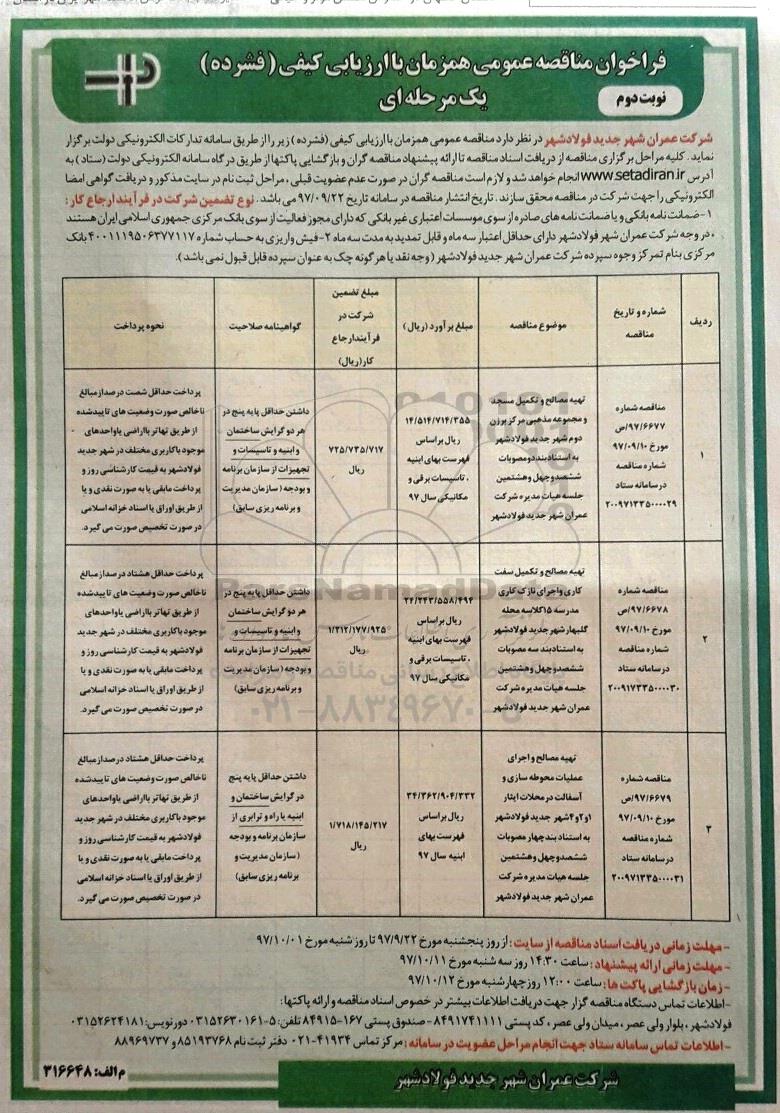 فراخوان مناقصه عمومی همزمان با ارزیابی کیفی (فشرده)
یک مرحله ای
نوبت دوم
شرکت عمران شهر جدید فولادشهر در نظر دارد مناقصه عمومی همزمان با ارزیابی کیفی (فشرده) زیر را از طریق سامانه تدارکات الکترونیکی دولت برگزار
نماید. کلیه مراحل برگزاری مناقصه از دریافت اسناد مناقصه تا ارائه پیشنهاد مناقصه گران و بازگشایی پاکتها از طریق درگاه سامانه الکترونیکی دولت (ستاد) به
آدرس www.setadiran.ir انجام خواهد شد و لازم است مناقصه گران در صورت عدم عضویت قبلی، مراحل ثبت نام در سایت مذکور و دریافت گواهی امضا
الکترونیکی را جهت شرکت در مناقصه محقق سازند. تاریخ انتشار مناقصه در سامانه تاریخ ۹۷/۰۹/۲۲ می باشد. نوع تضمین شرکت در فرآیند ارجاع کار:
۱-ضمانت نامه بانکی و یا ضمانت نامه های صادره از سوی موسسات اعتباری غیر بانکی که دارای مجوز فعالیت از سوی بانک مرکزی جمهوری اسلامی ایران هستند
، در وجه شرکت عمران شهر فولادشهر دارای حداقل اعتبار سه ماه و قابل تمدید به مدت سه ماه ۲-فیش واریزی به حساب شماره ۴۰۰۱۱۱۹۵۰۶۳۷۷۱۱۷ بانک
مرکزی بنام تمرکز وجوه سپرده شرکت عمران شهر جدید فولادشهر (وجه نقد یا هرگونه چک به عنوان سپرده قابل قبول نمی باشد).
ردیف
شماره و تاریخ
مناقصه
موضوع مناقصه
مبلغ برآورد (ریال)
مبلغ تضمین
شرکت در
فرآیند ارجاع
کار(ریال)
گواهینامه صلاحیت
نحوه پرداخت
۱
مناقصه شماره
۹۷/۶۶۷۷/ص
مورخ ۹۷/۰۹/۱۰
شماره مناقصه
در سامانه ستاد
۲۰۰۹۷۱۳۳۵۰۰۰۰۲۹
تهیه مصالح و تکمیل مسجد
و مجموعه مذهبی مرکز برزن
دوم شهر جدید فولادشهر
به استناد بند دو مصوبات
ششصد و چهل و هشتمین
جلسه هیات مدیره شرکت
عمران شهر جدید فولادشهر
۱۴/۵۱۴/۷۱۴/۳۵۵
ریال براساس
فهرست بهای ابنیه
، تاسیسات برقی و
مکانیکی سال ۹۷
۷۲۵/۷۳۵/۷۱۷
ریال
داشتن حداقل پایه پنج در
هر دو گرایش ساختمان
و ابنیه و تاسیسات و
تجهیزات از سازمان برنامه
و بودجه (سازمان مدیریت
و برنامه ریزی سابق)
پرداخت حداقل شصت درصد از مبالغ
ناخالص صورت وضعیت های تایید شده
از طریق تهاتر با اراضی یا واحدهای
موجود با کاربری مختلف در شهر جدید
فولادشهر به قیمت کارشناسی روز و
پرداخت مابقی یا به صورت نقدی و یا
از طریق اوراق یا اسناد خزانه اسلامی
در صورت تخصیص صورت می گیرد.
۲
مناقصه شماره
۹۷/۶۶۷۸/ص
مورخ ۹۷/۰۹/۱۰
شماره مناقصه
در سامانه ستاد
۲۰۰۹۷۱۳۳۵۰۰۰۰۳۰
تهیه مصالح و تکمیل سفت
کاری و اجرای نازک کاری
مدرسه ۱۵کلاسه محله
گلبهار شهر جدید فولادشهر
به استناد بند سه مصوبات
ششصد و چهل و هشتمین
جلسه هیات مدیره شرکت
عمران شهر جدید فولادشهر
۲۴/۲۴۳/۵۵۸/۴۹۴
ریال براساس
فهرست بهای ابنیه
، تاسیسات برقی و
مکانیکی سال ۹۷
۱/۲۱۲/۱۷۷/۹۲۵
ریال
داشتن حداقل پایه پنج در
هر دو گرایش ساختمان
و ابنیه و تاسیسات و
تجهیزات از سازمان برنامه
و بودجه (سازمان مدیریت
و برنامه ریزی سابق)
پرداخت حداقل هشتاد درصد از مبالغ
ناخالص صورت وضعیت های تایید شده
از طریق تهاتر با اراضی یا واحدهای
موجود با کاربری مختلف در شهر جدید
فولادشهر به قیمت کارشناسی روز و
پرداخت مابقی یا به صورت نقدی و یا
از طریق اوراق یا اسناد خزانه اسلامی
در صورت تخصیص صورت می گیرد.
۳
مناقصه شماره
۹۷/۶۶۷۹/ص
مورخ ۹۷/۰۹/۱۰
شماره مناقصه
در سامانه ستاد
۲۰۰۹۷۱۳۳۵۰۰۰۰۳۱
تهیه مصالح و اجرای
عملیات محوطه سازی و
آسفالت در محلات ایثار
۱و۲و۴شهر جدید فولادشهر
به استناد بند چهار مصوبات
ششصد و چهل و هشتمین
جلسه هیات مدیره شرکت
عمران شهر جدید فولادشهر
۳۴/۳۶۲/۹۰۴/۳۳۲
ریال براساس
فهرست بهای
ابنیه سال ۹۷
۱/۷۱۸/۱۴۵/۲۱۷
ریال
داشتن حداقل پایه پنج
در گرایش ساختمان و
ابنیه یا راه و ترابری از
سازمان برنامه و بودجه
(سازمان مدیریت و
برنامه ریزی سابق)
پرداخت حداقل هشتاد درصد از مبالغ
ناخالص صورت وضعیت های تایید شده
از طریق تهاتر با اراضی یا واحدهای
موجود با کاربری مختلف در شهر جدید
فولادشهر به قیمت کارشناسی روز و
پرداخت مابقی یا به صورت نقدی و یا
از طریق اوراق یا اسناد خزانه اسلامی
در صورت تخصیص صورت می گیرد.
ParsNamadData
۰۲۱-۸۸۳۴۹۶۷۰-۵
-مهلت زمانی دریافت اسناد مناقصه از سایت: از روز پنجشنبه مورخ ۹۷/۹/۲۲ تا روز شنبه مورخ ۹۷/۱۰/۰۱
-مهلت زمانی ارائه پیشنهاد: ساعت ۱۴:۳۰ روز سه شنبه مورخ ۹۷/۱۰/۱۱
-زمان بازگشایی پاکت ها: ساعت ۱۲:۰۰ روز چهارشنبه مورخ ۹۷/۱۰/۱۲
-اطلاعات تماس دستگاه مناقصه گزار جهت دریافت اطلاعات بیشتر در خصوص اسناد مناقصه و ارائه پاکتها:
فولادشهر، بلوار ولی عصر، میدان ولی عصر، کد پستی ۸۴۹۱۷۴۱۱۱۱- صندوق پستی ۱۶۷-۸۴۹۱۵ تلفن: ۵-۰۳۱۵۲۶۳۰۱۶۱ دورنویس: ۰۳۱۵۲۶۲۴۱۸۱
-اطلاعات تماس سامانه ستاد جهت انجام مراحل عضویت در سامانه: مرکز تماس ۴۱۹۳۴-۰۲۱ دفتر ثبت نام ۸۵۱۹۳۷۶۸ و ۸۸۹۶۹۷۳۷
شرکت عمران شهر جدید فولادشهر
م الف: ۳۱۶۶۴۸